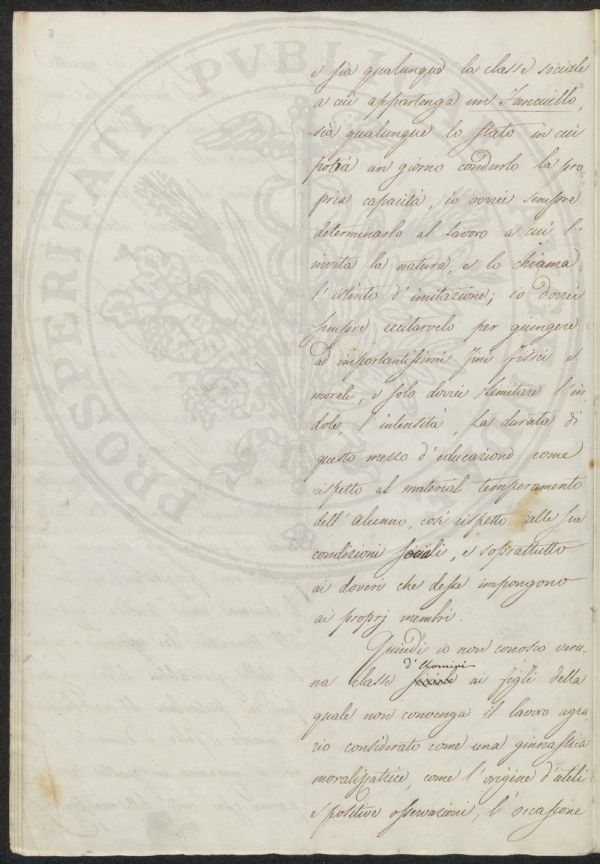 e sia qualunque la classe sociale
a cui appartenga un Fanciullo,
sia qualunque lo stato in cui
potrà un giorno condurlo la pro-
pria capacità, io vorrei sempre
determinarlo al lavoro a cui l'
invita la natura, e lo chiama
l'istinto d'imitazione; io dovrei
sempre eccitarvelo per giungere
ad importantissimi fini fisici e
morali, e solo dovrei limitare l'in-
dole, l'intensità, la durata di
questo mezzo d'educazione come
rispetto al material temperamento
dell'alunno, così rispetto alle sue
condizioni sociali, e soprattutto
ai doveri che desse impongono
ai proprj membri.
Quindi io non conosco veru-
na classe d'Uomini ai figli della
quale non convenga il lavoro agra-
rio considerato come una ginnastica
moralizzatrice, come l'origine d'utili
e positive osservazioni, l'occasione
PROSPERITATI PVBLICAE